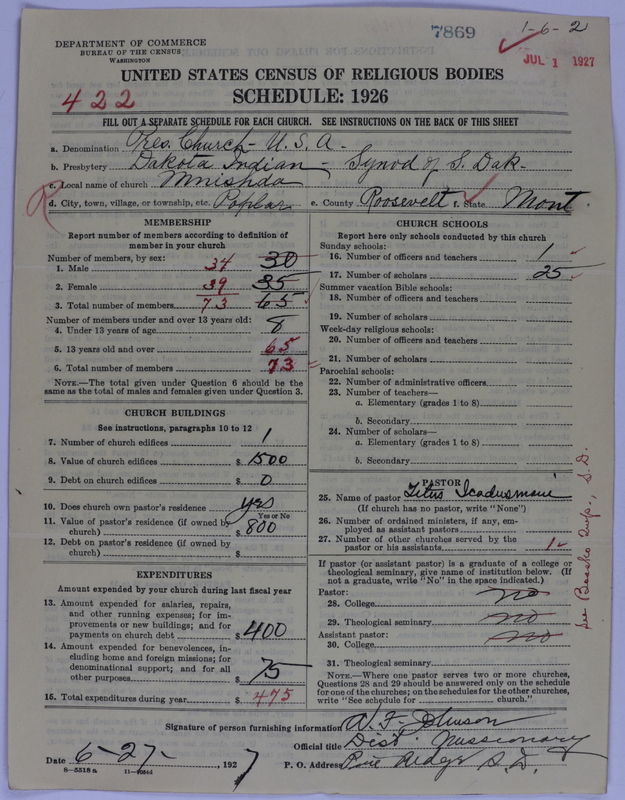 7869
1-6-2
JUL 1 1927
DEPARTMENT OF COMMERCE
BUREAU OF THE CENSUS
WASHINGTON
UNITED STATES CENSUS OF RELIGIOUS BODIES
422
SCHEDULE: 1926
FILL OUT A SEPARATE SCHEDULE FOR EACH CHURCH. SEE INSTRUCTIONS ON THE BACK OF THIS SHEET
a. Denomination Pres. Church - U.S.A.
b. Presbytery Dakota Indian - Synod of S. Dak.
c. Local name of church Mnishda
d. City, town, village, or township, etc. Poplar e. County Roosevelt f. State Mont.
MEMBERSHIP
Report number of members according to definition of
member in your church
Number of members, by sex:
1. Male 34 30
2. Female 39 35
3. Total number of members 73 65
Number of members under and over 13 years old:
4. Under 13 years of age 8
5. 13 years old and over 65
6. Total number of members 73
NOTE.—The total given under Question 6 should be
the same as the total of males and females given under Question 3.
CHURCH BUILDINGS
See instructions, paragraphs 10 to 12
7. Number of church edifices 1
8. Value of church edifices $ 1500
9. Debt on church edifices $ 0
10. Does church own pastor's residence yes
Yes or No
11. Value of pastor's residence (if owned by
church) $ 800
12. Debt on pastor's residence (if owned by
church) $
EXPENDITURES
Amount expended by your church during last fiscal year
13. Amount expended for salaries, repairs,
and other running expenses; for im-
provements or new buildings; and for
payments on church debt $ 400
14. Amount expended for benevolences, in-
cluding home and foreign missions; for
denominational support; and for all
other purposes $ 75
16. Total expenditures during year $ 475
CHURCH SCHOOLS
Report here only schools conducted by this church
Sunday schools:
16. Number of officers and teachers 1
17. Number of scholars 25
Summer vacation Bible schools:
18. Number of officers and teachers
19. Number of scholars
Week-day religious schools:
20. Number of officers and teachers
21. Number of scholars
Parochial schools:
22. Number of administrative officers
23. Number of teachers—
a. Elementary (grades 1 to 8)
b. Secondary
24. Number of scholars—
a. Elementary (grades 1 to 8)
b. Secondary
PASTOR
25. Name of pastor Titus Icadusmani
(If church has no pastor, write "None")
26. Number of ordained ministers, if any, em-
ployed as assistant pastors
27. Number of other churches served by the
pastor or his assistants 1
If pastor (or assistant pastor) is a graduate of a college or
theological seminary, give name of institution below. (If
not a graduate, write "No" in the space indicated.)
Pastor:
28. College no
29. Theological seminary no
Assistant pastor:
30. College no
31. Theological seminary
NOTE.—Where one pastor serves two or more churches,
Questions 28 and 29 should be answered only on the schedule
for one of the churches; on the schedules for the other churches,
write "See schedule for church."
S. D.
Signature of person furnishing information W. F. Johnson
Official title Dist. Missionary
Date 6-27-, 1927 P. O. Address Pine Ridge S. D.
8-5518 a